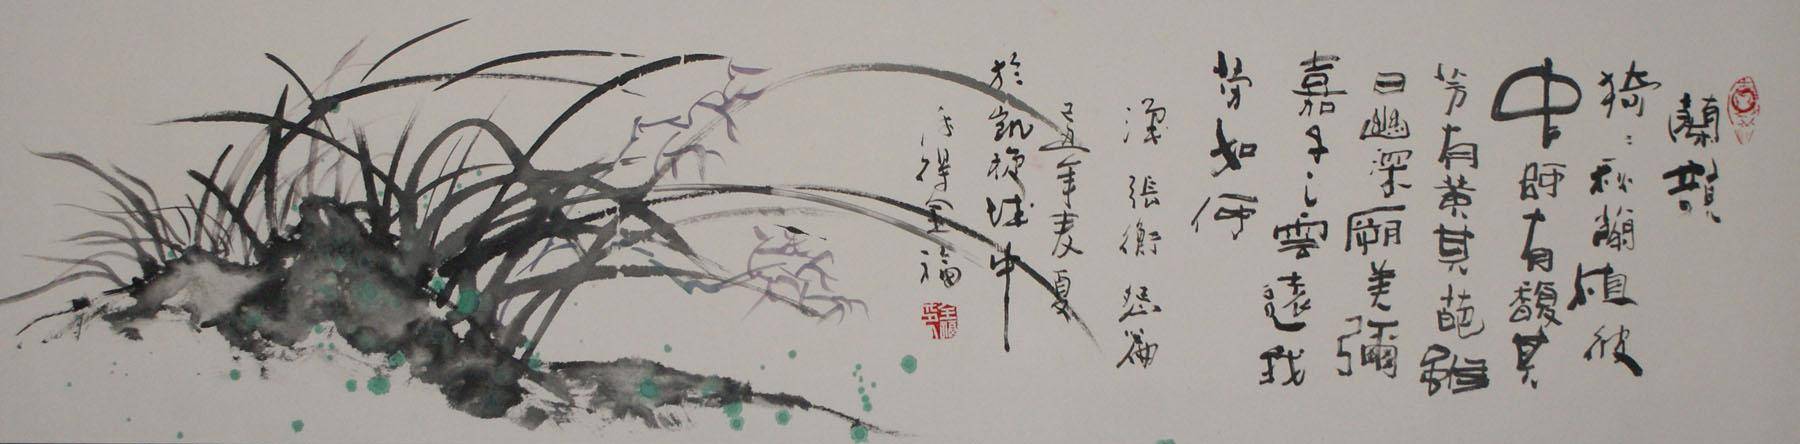 蘭韻
猗〻秋蘭植彼
中阿有馥其
芳有黃其葩雖
曰幽深厥美彌
嘉子之雲遠我
勞如何
漢張衡怨篇
己丑年麦夏
於凱旋城中
得金福